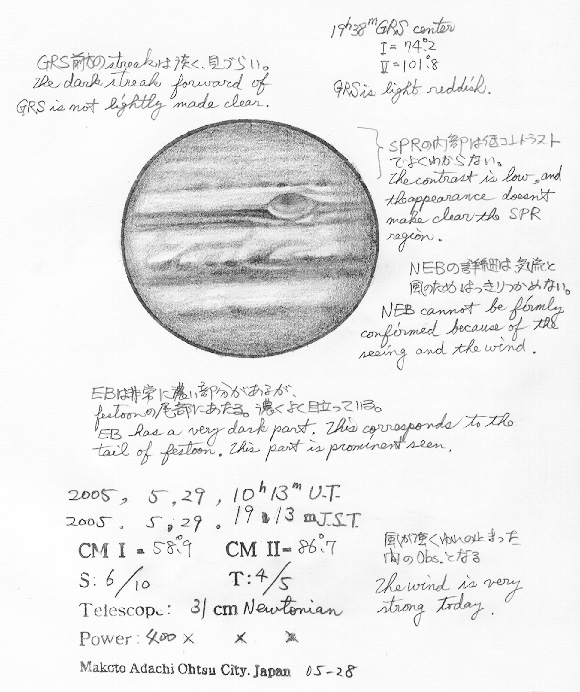 19h38m GRS center
I = 74°.2
II = 101°.8
GRS is light reddish.
GRS前方のstreakは淡く、見づらい。
The dark streak forward of
GRS is not lightly made clear.
SPRの内部は低コントラスト
でよくわからない。
The contrast is low, and
the appearance doesn't
make clear the SPR
region.
NEBの詳細は、気流と
風のためはっきりつかめない。
NEB cannot be firmly
confirmed because of the
seeing and the wind.
EBは非常に濃い部分があるが、
festoonの尾部にあたる。濃くよく目立っている。
EB has a very dark part. This corresponds to the
tail of festoon. This part is prominent seen.
2005, 5, 29, 10h 13m U.T.
2005. 5. 29. 19h 13m J.S.T.
CM I = 58°.9 CM II = 86°.7
S: 6/10 T: 4/5
Telescope: 31 cm Newtonian
Power: 400 × × ×
風が強く の止まった
間のObs.となる
The wind is very
strong today.
Makoto Adachi Ohtsu City. Japan 05-28